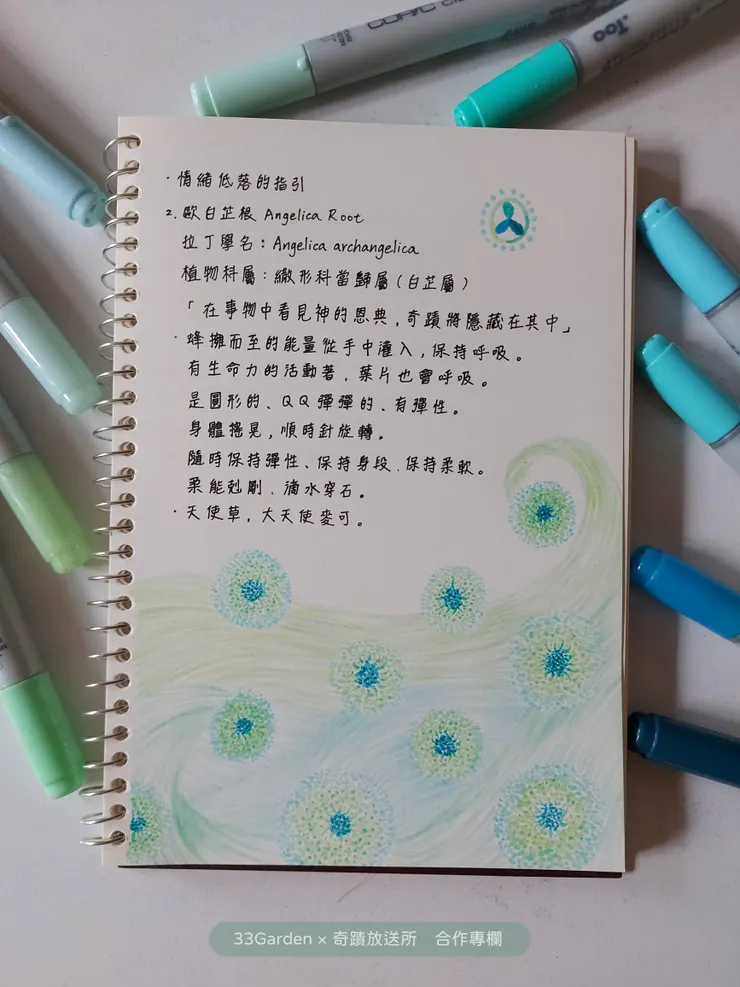 · 情緒低落的指引
2. 歐白芷根 Angelica Root
拉丁學名：Angelica archangelica
植物科屬：繖形科當歸屬（白芷屬）
「在事物中看見神的恩典，奇蹟將隱藏在其中」
· 蜂擁而至的能量從手中灌入，保持呼吸。
有生命力的活動著，葉片也會呼吸。
是圓形的、QQ彈彈的、有彈性。
身體搖晃，順時針旋轉。
隨時保持彈性、保持身段、保持柔軟。
柔能剋剛、滴水穿石。
· 天使草，大天使麥可。
Too
33Garden × 奇蹟放送所 合作專欄